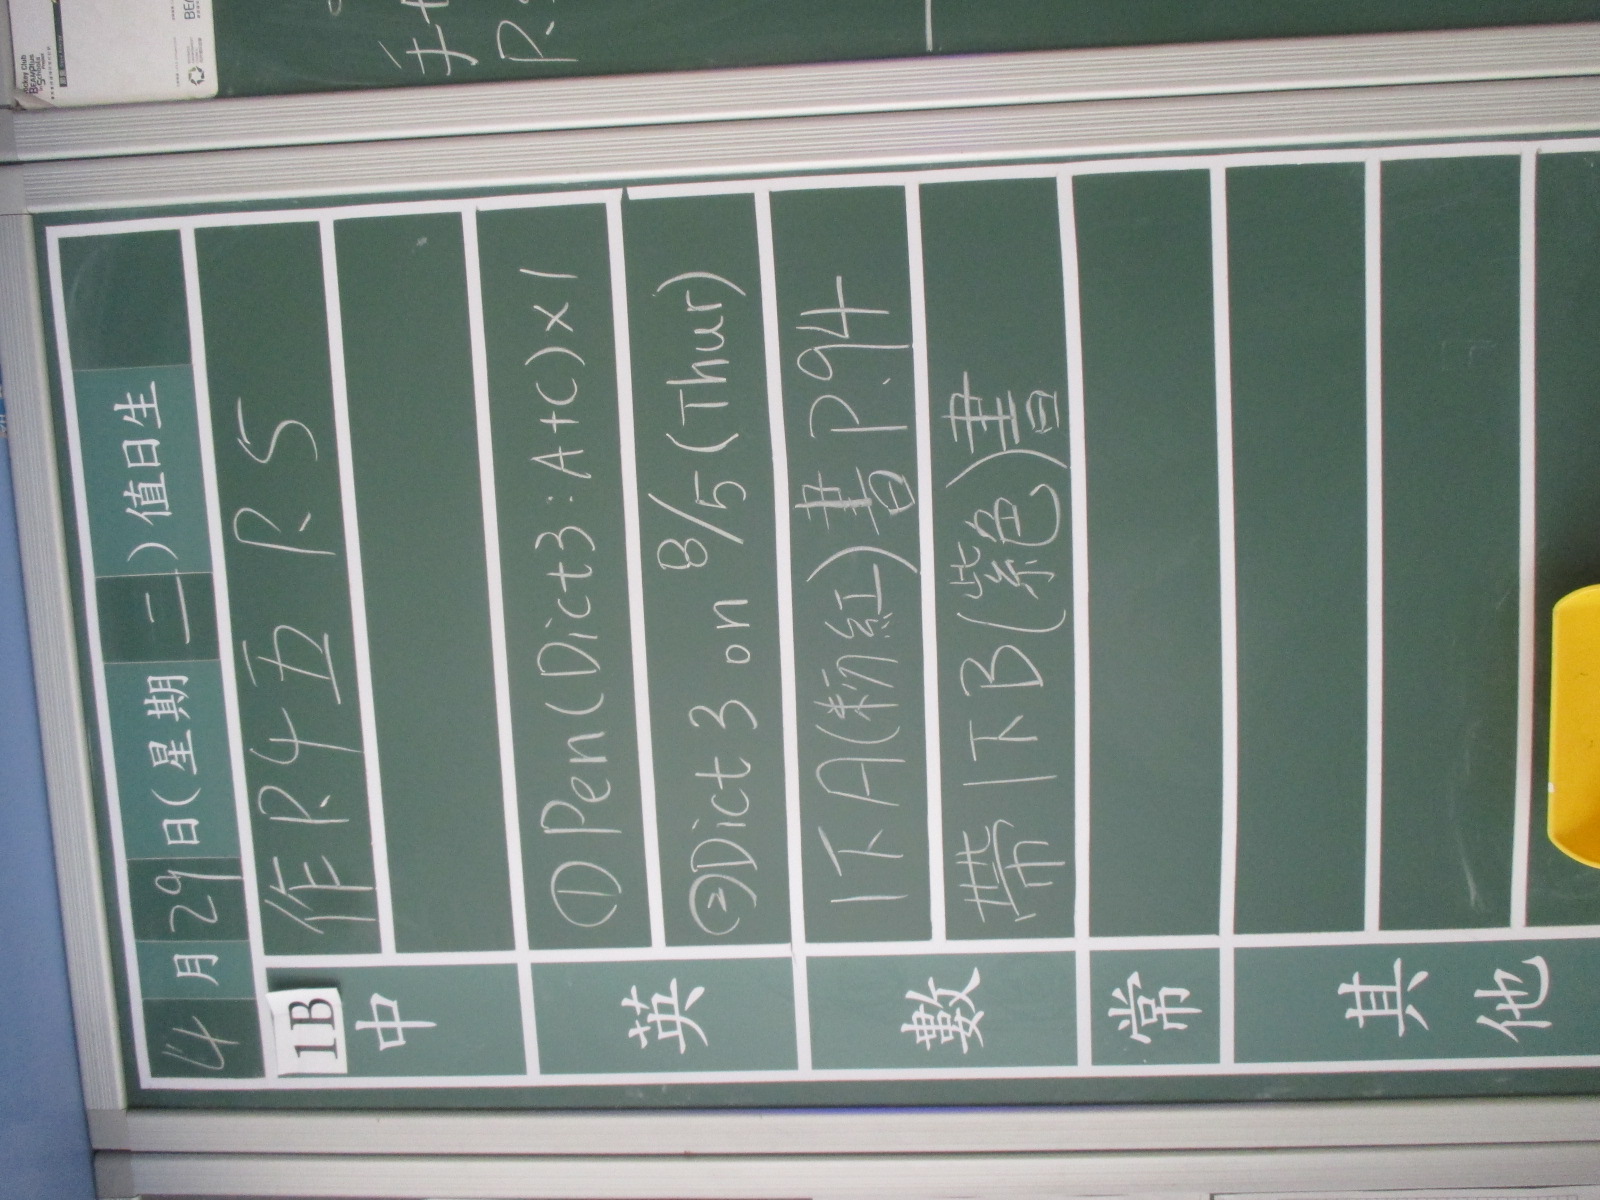 4月29日(星期二)值日生
1B
中
作P.4五 P.5
英
①Pen(Dict3:A+C)×1
②Dict 3 on 8/5(Thur)
數
1下A(粉紅)書P.94
帶1下B(紫色)書
常
其他